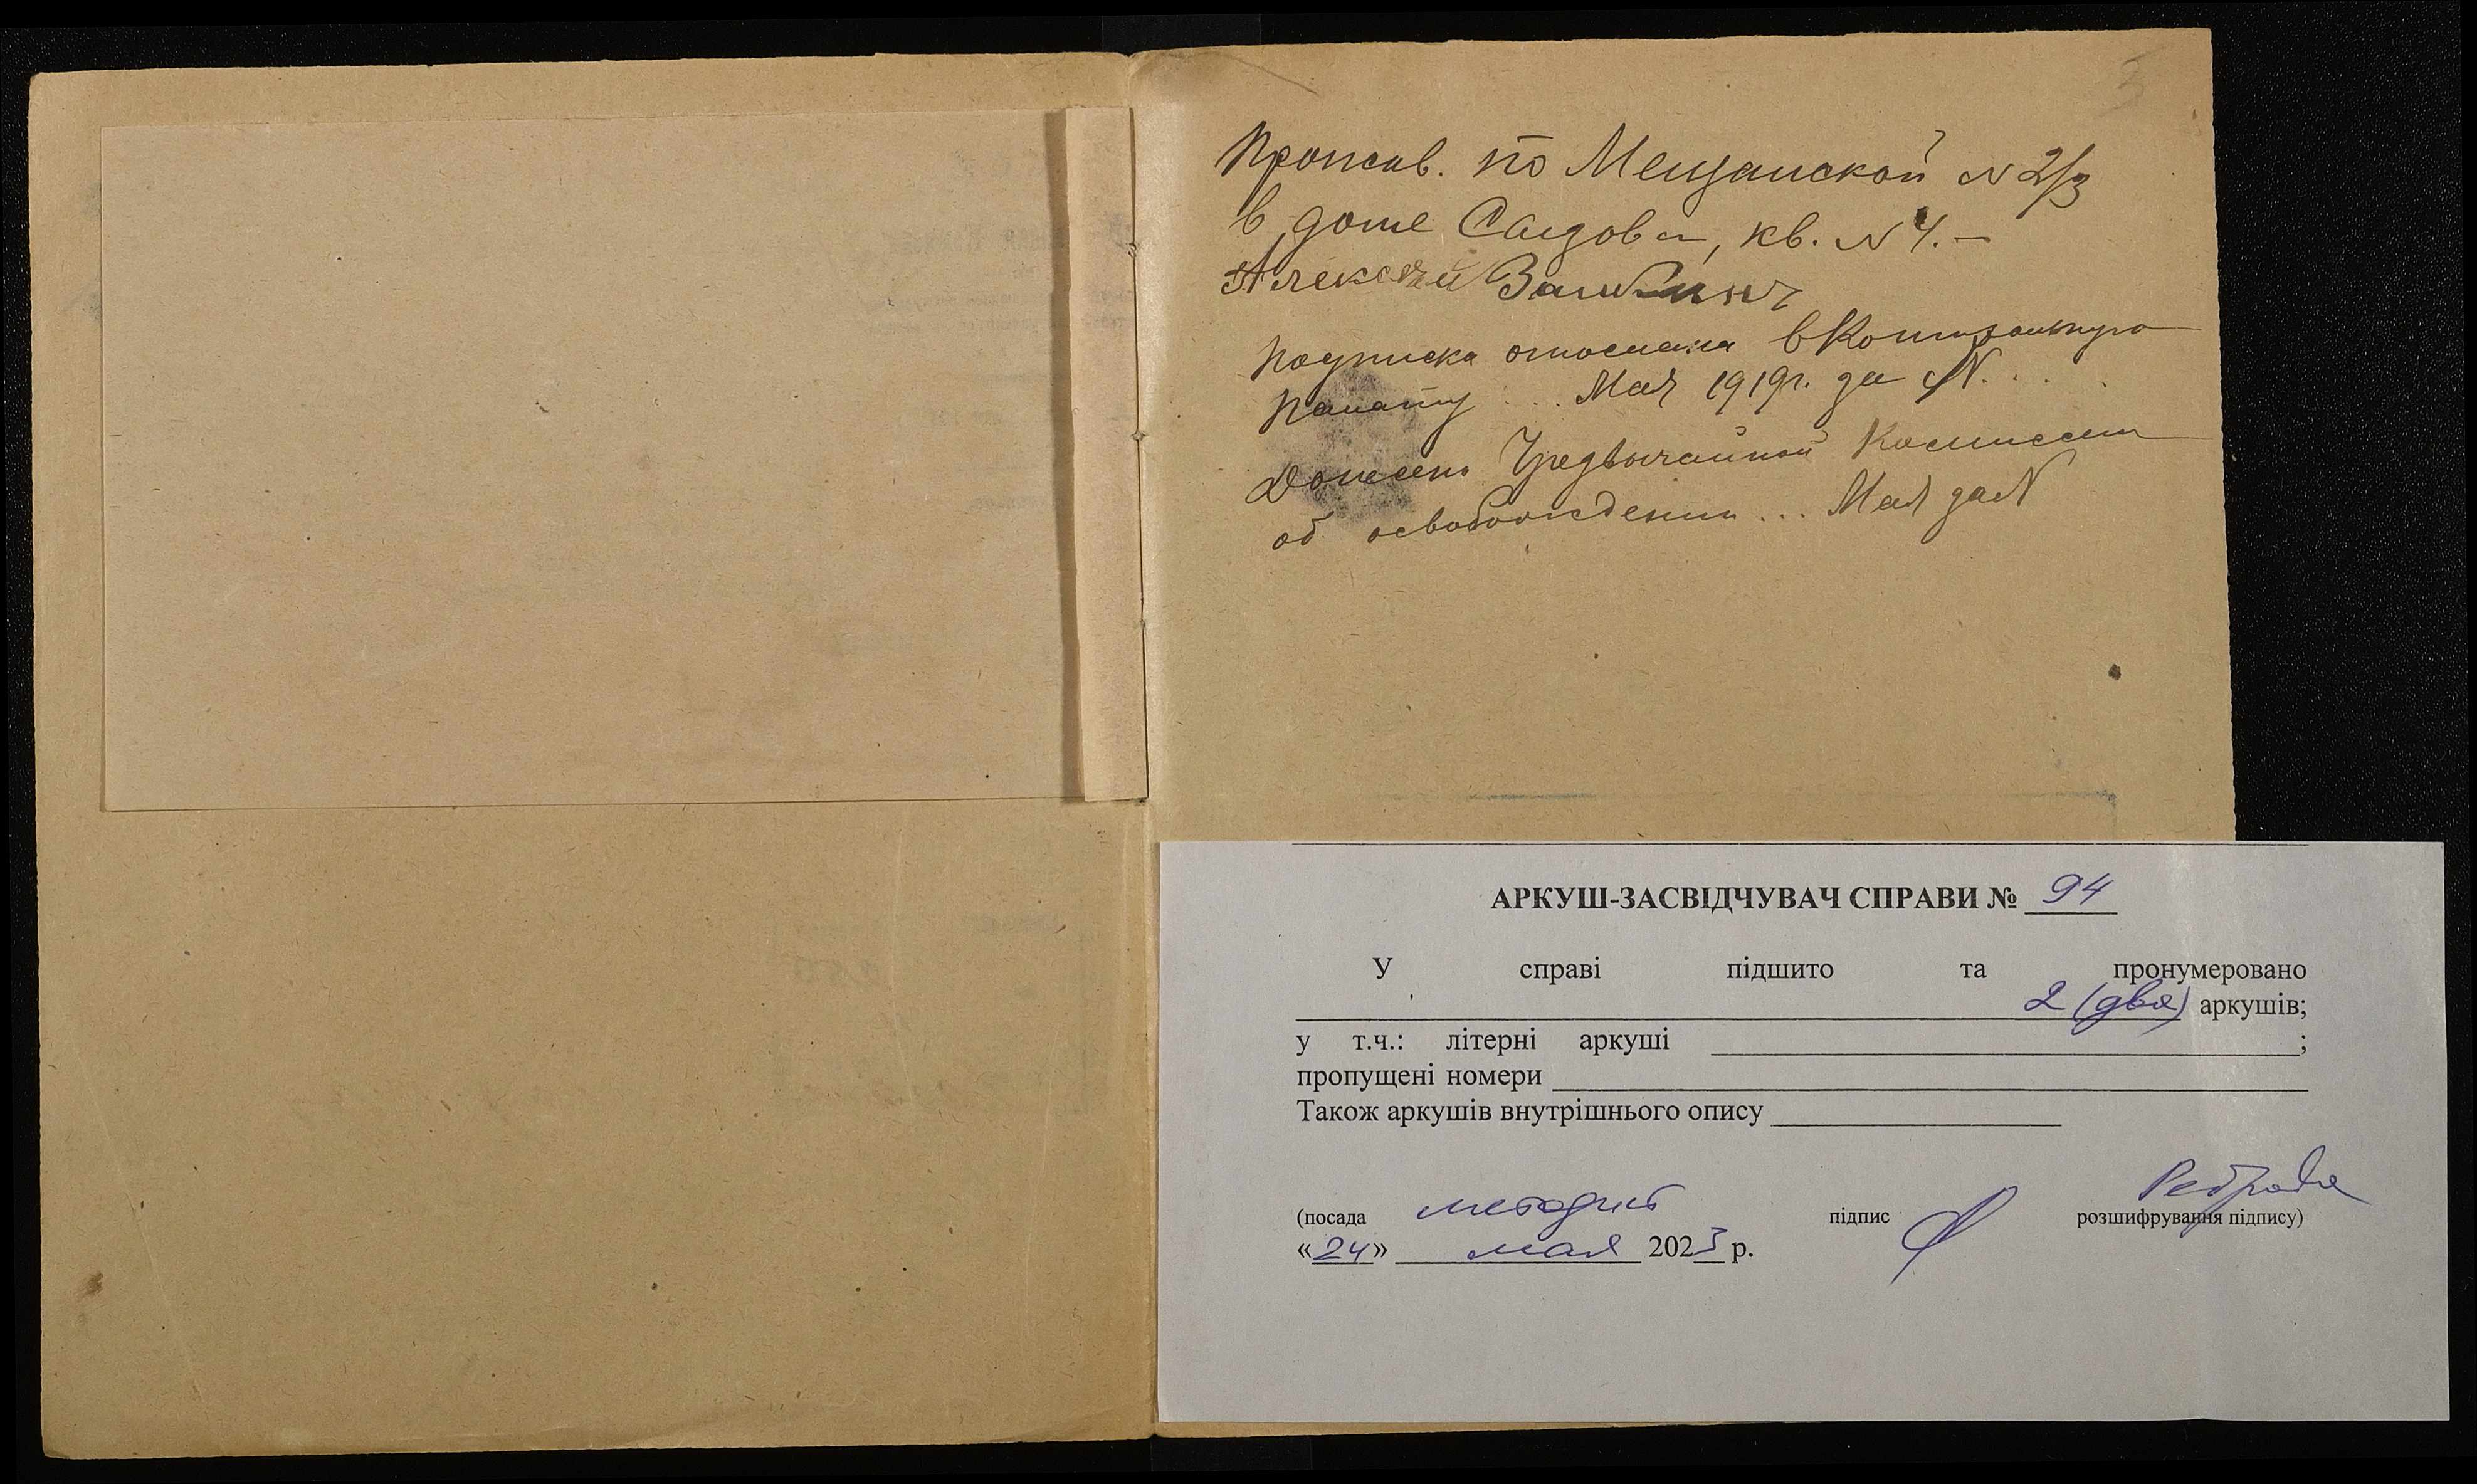 3
Прожив. по Мещанской N 2/3
в доме Саидова, кв. N 4. —
Алексей
Подписка отослана в Контрольную
Палату ... Мая 1919г. за N. . .
Донесено Чрезвычайной Комиссии
об освобождении ... Мая за N
АРКУШ-ЗАСВІДЧУВАЧ СПРАВИ № 94
У справі підшито та пронумеровано
2 (два) аркушів;
у т.ч.: літерні аркуші ;
пропущені номери
Також аркушів внутрішнього опису
(посада методист підпис розшифрування підпису) Реброва
«24» мая 2023 р.